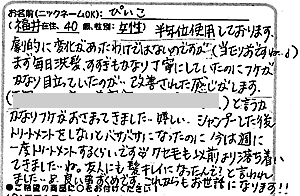 お名前(ニックネームOK): ぴいこ
(福井在住、40歳、性別: 女性) 半年位使用しております。
劇的に変化があったわけではないのですが、(当たり前ですが…)
まず毎日洗髪、すすぎもかなり丁寧にしていたのにフケが
かなり目立っていたのが、改善された感じがします。
と言うか
かなりフケがおさまってきました… 嬉しい… シャンプーした後
トリートメントをしないとバサバサになったのに今は週に
一度トリートメントするくらいです。クセ毛も以前より落ち着い
てきました…ね。友人にも髪キレイになったんと?と言われ
ました… 良い事あるです。これからもお世話になります!!
●ご希望の商品に○をお付けください!